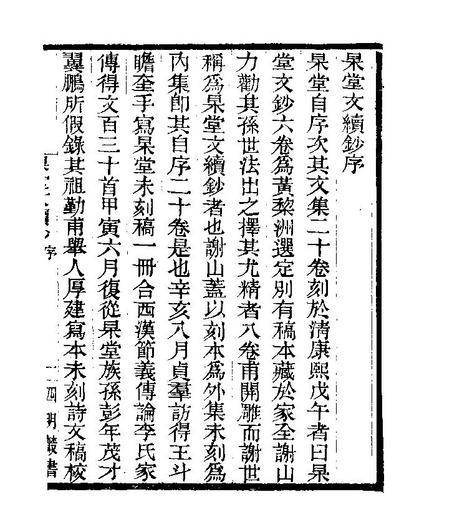 杲堂文續鈔序
杲堂自序次其文集二十卷刻於清康熙戊午者曰杲
堂文鈔六卷爲黃黎洲選定別有稿本藏於家全謝山
力勸其孫世法出之擇其尤精者八卷甫開雕而謝世
稱爲杲堂文續鈔者也謝山蓋以刻本爲外集未刻爲
內集卽其自序二十卷是也辛亥八月貞羣訪得王斗
瞻奎手寫杲堂未刻稿一冊合西漢節義傳論李氏家
傳得文百三十首甲寅六月復從杲堂族孫彭年茂才
翼鵬所假錄其祖勤甫舉人厚建寫本未刻詩文稿校
序
四明叢書